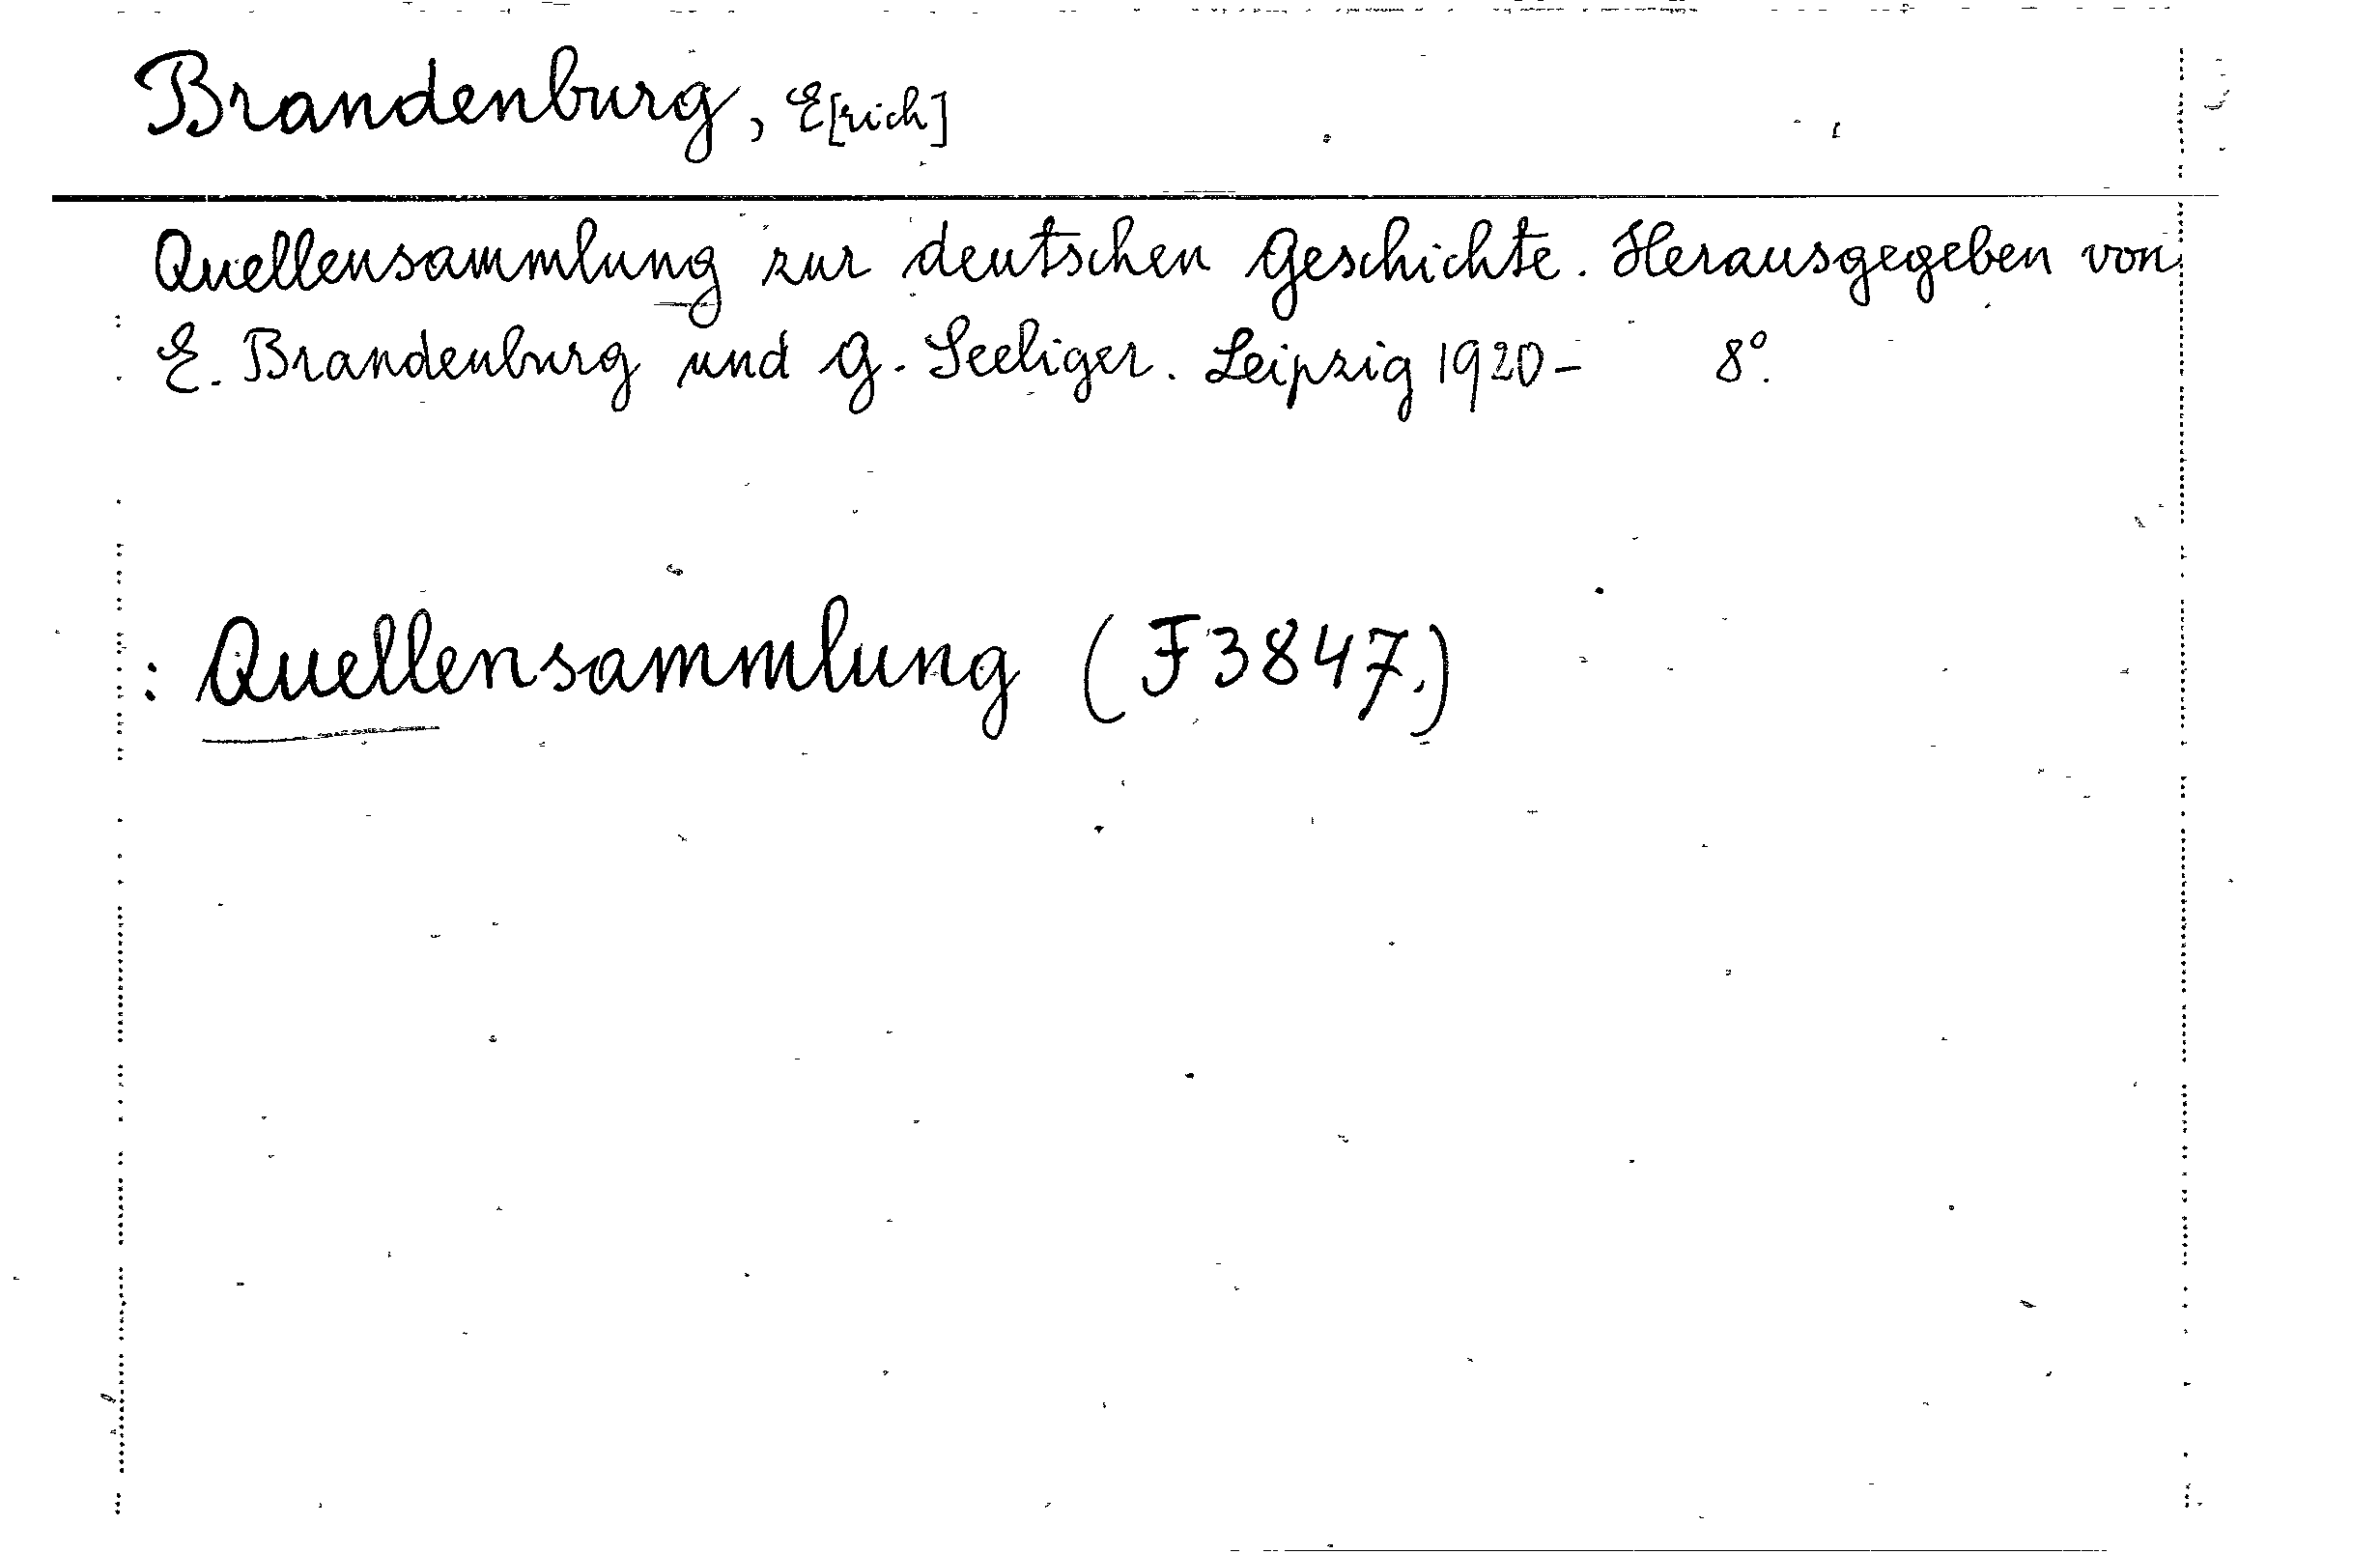 Brandenburg, E[rich]
Quellensammlung zur deutschen Geschichte. Herausgegeben von
E. Brandenburg und G. Seeliger. Leipzig 1920- 8°.
: Quellensammlung (F3847.)